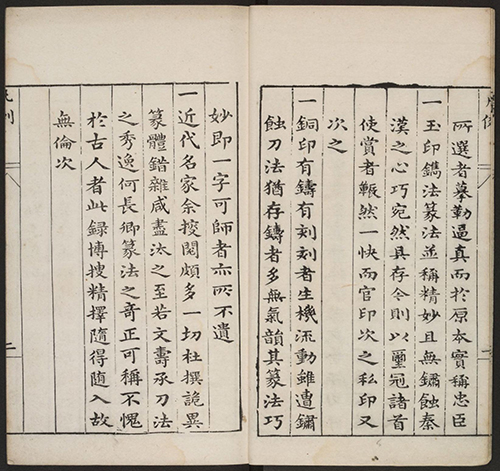 所選者摹勒逼真而於原本實稱忠臣
一玉印鐫法篆法並稱精妙且無鏽蝕秦
漢之心巧宛然具存今則以璽冠諸首
使賞者囅然一快而官印次之私印又
次之
一銅印有鑄有刻刻者生機流動雖遭鏽
蝕刀法猶存鑄者多無氣韻其篆法巧
妙即一字可師者亦所不遺
一近代名家余搜閱頗多一切杜撰詭異
篆體錯雜咸盡汰之至若文壽承刀法
之秀逸何長卿篆法之奇正可稱不愧
於古人者此錄博搜精擇隨得隨入故
無倫次